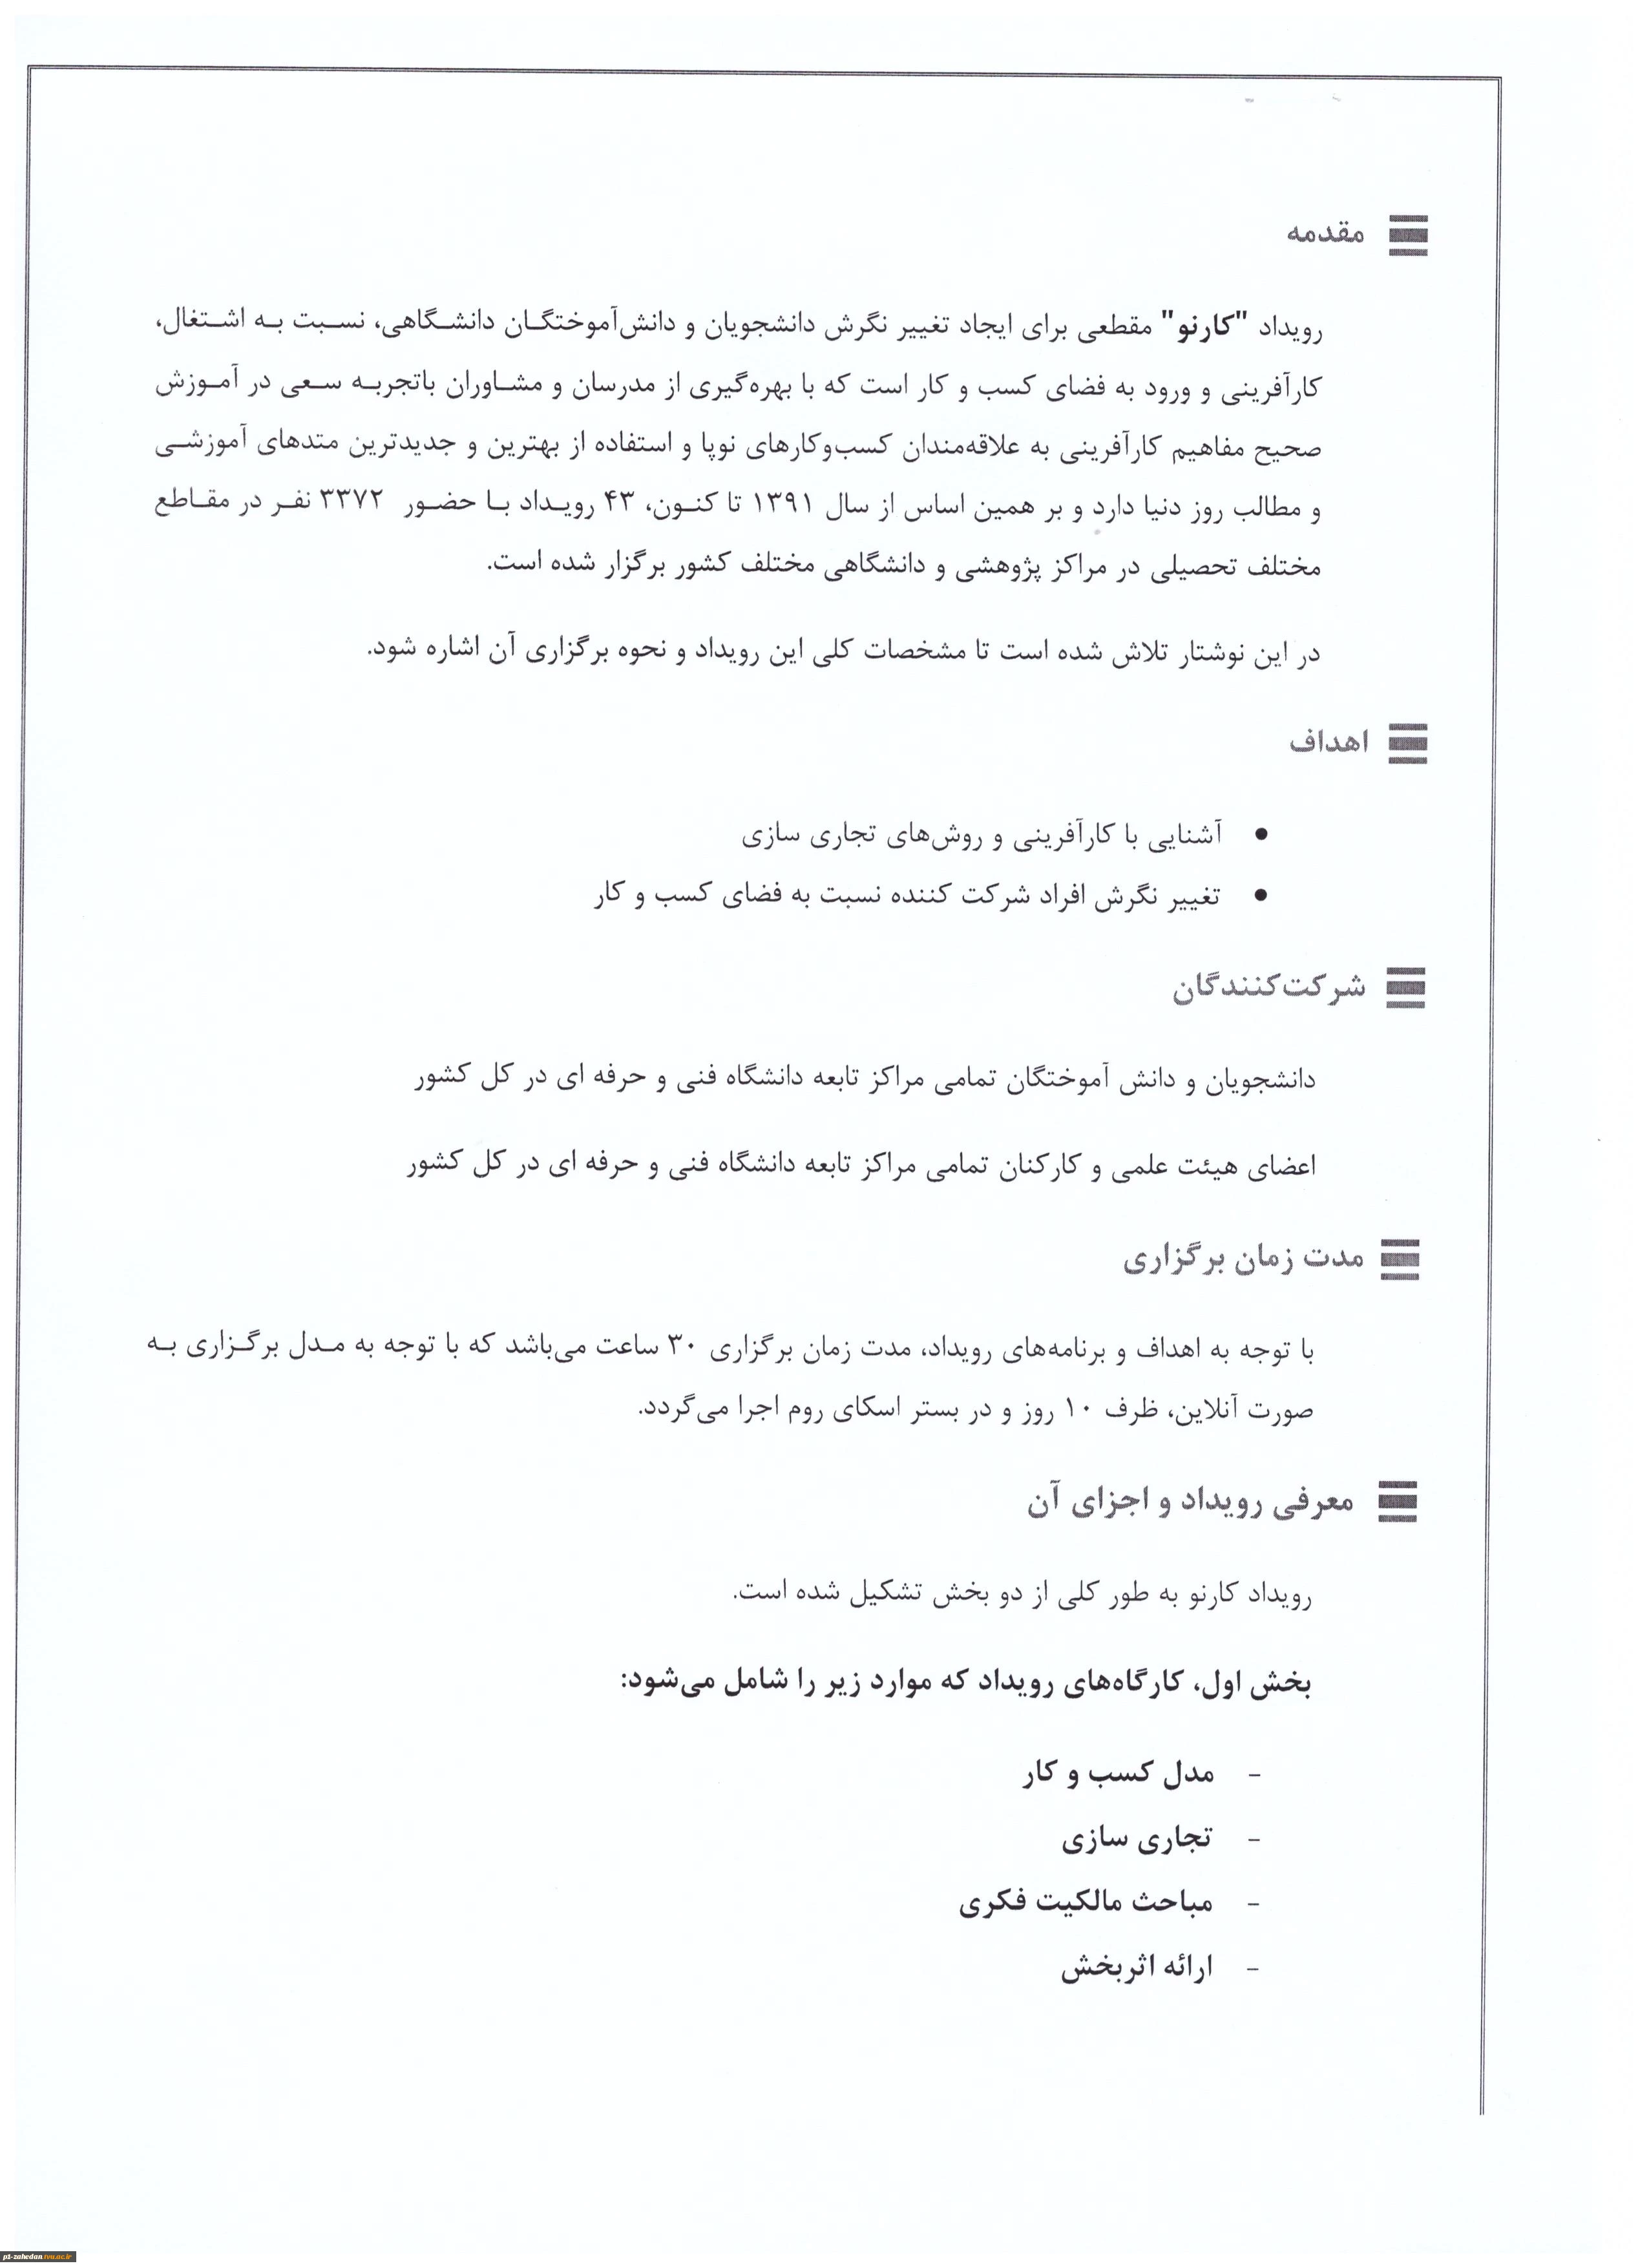 مقدمه
رویداد "کارنو" مقطعی برای ایجاد تغییر نگرش دانشجویان و دانش‌آموختگان دانشگاهی، نسبت به اشتغال،
کارآفرینی و ورود به فضای کسب و کار است که با بهره‌گیری از مدرسان و مشاوران باتجربه سعی در آموزش
صحیح مفاهیم کارآفرینی به علاقه‌مندان کسب‌وکارهای نوپا و استفاده از بهترین و جدیدترین متدهای آموزشی
و مطالب روز دنیا دارد و بر همین اساس از سال ۱۳۹۱ تا کنون، ۴۳ رویداد با حضور ۳۳۷۲ نفر در مقاطع
مختلف تحصیلی در مراکز پژوهشی و دانشگاهی مختلف کشور برگزار شده است.
در این نوشتار تلاش شده است تا مشخصات کلی این رویداد و نحوه برگزاری آن اشاره شود.
اهداف
• آشنایی با کارآفرینی و روش‌های تجاری سازی
• تغییر نگرش افراد شرکت کننده نسبت به فضای کسب و کار
شرکت‌کنندگان
دانشجویان و دانش آموختگان تمامی مراکز تابعه دانشگاه فنی و حرفه ای در کل کشور
اعضای هیئت علمی و کارکنان تمامی مراکز تابعه دانشگاه فنی و حرفه ای در کل کشور
مدت زمان برگزاری
با توجه به اهداف و برنامه‌های رویداد، مدت زمان برگزاری ۳۰ ساعت می‌باشد که با توجه به مدل برگزاری به
صورت آنلاین، ظرف ۱۰ روز و در بستر اسکای روم اجرا می‌گردد.
معرفی رویداد و اجزای آن
رویداد کارنو به طور کلی از دو بخش تشکیل شده است.
بخش اول، کارگاه‌های رویداد که موارد زیر را شامل می‌شود:
- مدل کسب و کار
- تجاری سازی
- مباحث مالکیت فکری
- ارائه اثربخش
p1-zahedan.tvu.ac.ir